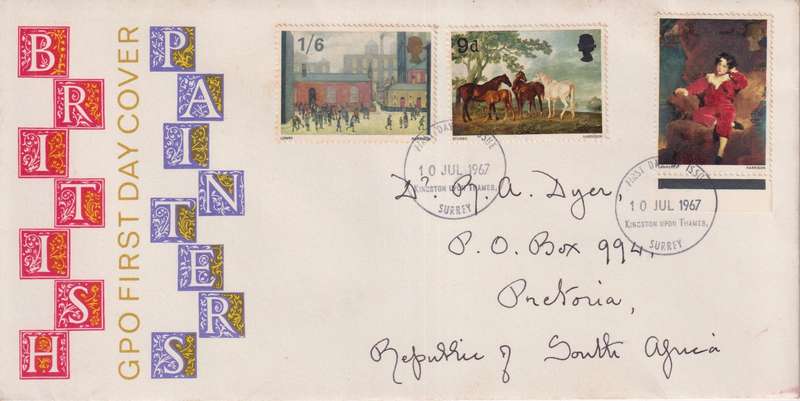 BRITISH
GPO FIRST DAY COVER
PAINTERS
1/6
LOWRY
9d
STUBBS
HARRISON
HARRISON
FIRST DAY OF ISSUE
10 JUL 1967
KINGSTON UPON THAMES,
SURREY
FIRST DAY ISSUE
10 JUL 1967
KINGSTON UPON THAMES,
SURREY
Dr. R. A. Dyer,
P. O. Box 994,
Pretoria,
Republic of South Africa